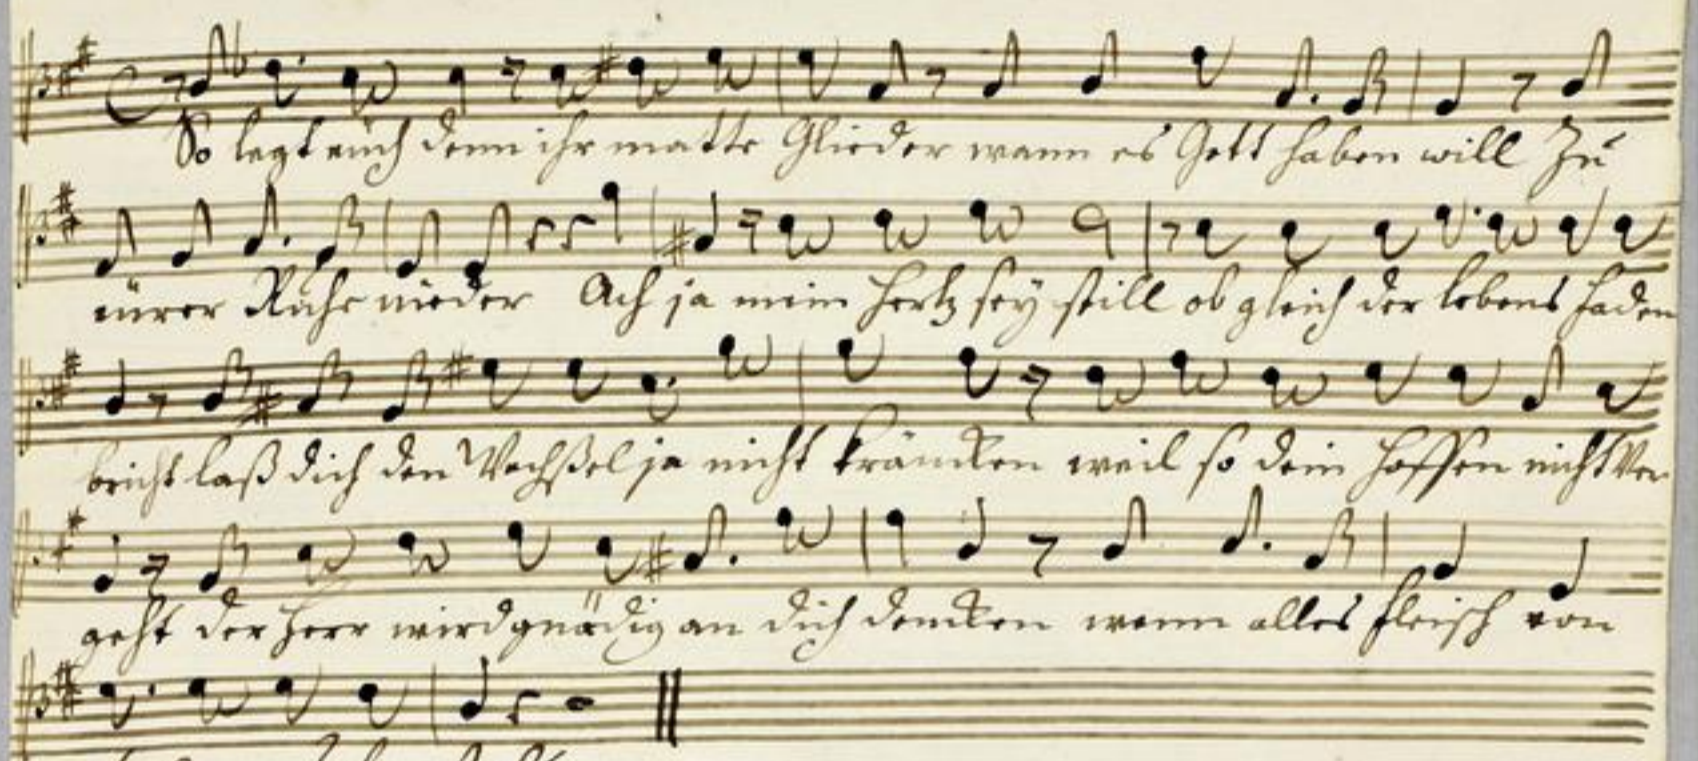 So legt euch denn ihr matte Glieder wann es Gott haben will zu
eürer Ruhe nieder Ach ja mein Hertz sey still ob gleich der lebens faden
bricht laß dich den Wechßel ja nicht kräncken weil so dein hoffen nicht ver
geht der Herr wird gnädig an dich dencken wenn alles fleisch von